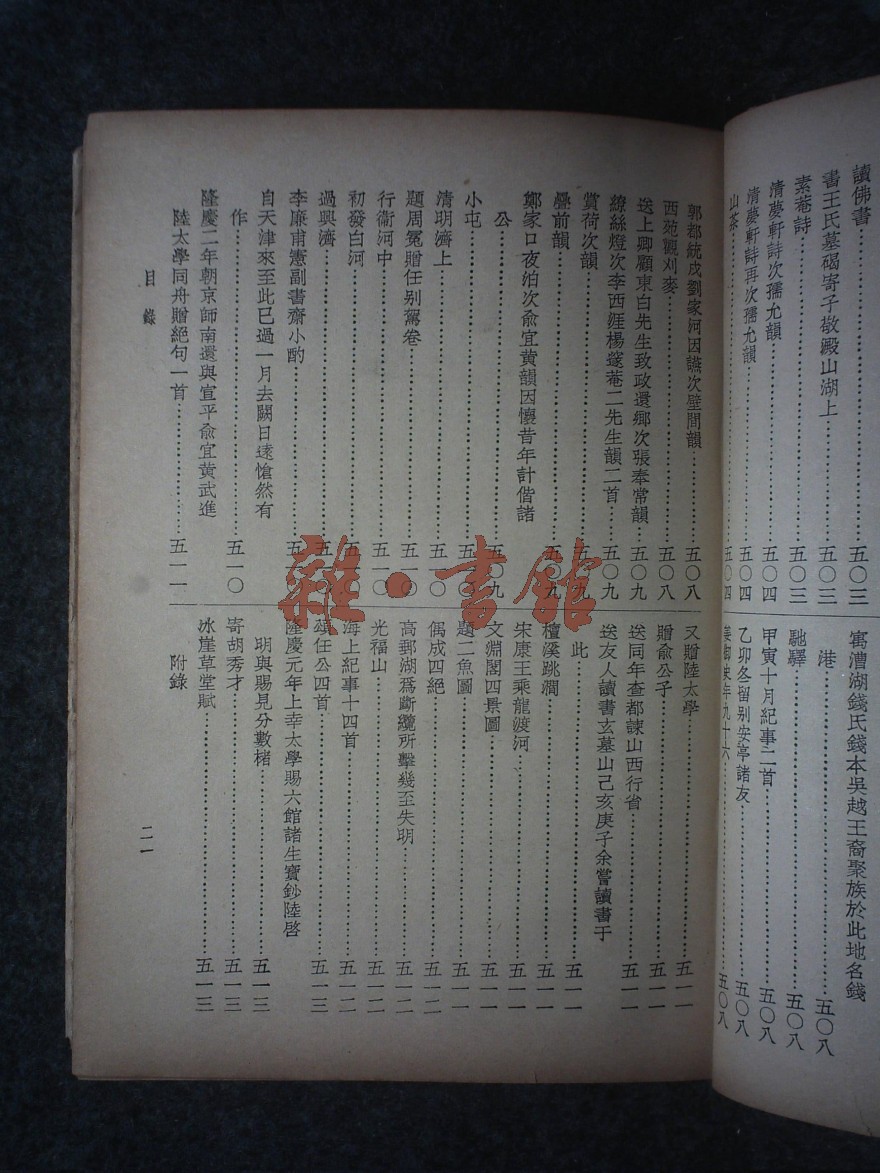 讀佛書……五〇三
書王氏墓碣寄子敬澱山湖上……五〇三
素菴詩……五〇三
清夢軒詩次孺允韻……五〇四
清夢軒詩再次孺允韻……五〇四
山茶……五〇四
寓漕湖錢氏錢本吳越王裔聚族於此地名錢
港……五〇八
馳驛……五〇八
甲寅十月紀事二首……五〇八
乙卯冬留别安亭諸友……五〇八
姜御史年九十六……五〇八
郭都統戍劉家河因讌次壁間韻……五〇八
西苑觀刈麥……五〇八
送上卿顧東白先生致政還鄉次張奉常韻……五〇九
繚絲燈次李西涯楊邃菴二先生韻二首……五〇九
賞荷次韻……五〇九
疊前韻……五〇九
鄭家口夜泊次俞宜黃韻因懷昔年計偕諸
公……五〇九
小屯……五一〇
清明濟上……五一〇
題周冕贈任别駕卷……五一〇
行衛河中……五一〇
初發白河……五一〇
過興濟……五一〇
李廉甫憲副書齋小酌……五一〇
自天津來至此已過一月去闕日遠愴然有
作……五一〇
隆慶二年朝京師南還與宣平俞宜黃武進
陸太學同舟贈絕句一首……五一一
又贈陸太學……五一一
贈俞公子……五一一
送同年查都諫山西行省……五一一
送友人讀書玄墓山己亥庚子余嘗讀書于
此……五一一
檀溪跳澗……五一一
宋康王乘龍渡河……五一一
文淵閣四景圖……五一一
題二魚圖……五一一
偶成四絕……五一二
高郵湖爲斷纜所擊幾至失明……五一二
光福山……五一二
海上紀事十四首……五一二
頌任公四首……五一三
隆慶元年上幸太學賜六館諸生寶鈔陸啓
明與賜見分數楮……五一三
寄胡秀才……五一三
附錄
冰崖草堂賦……五一三
目錄
二一
雜·書館